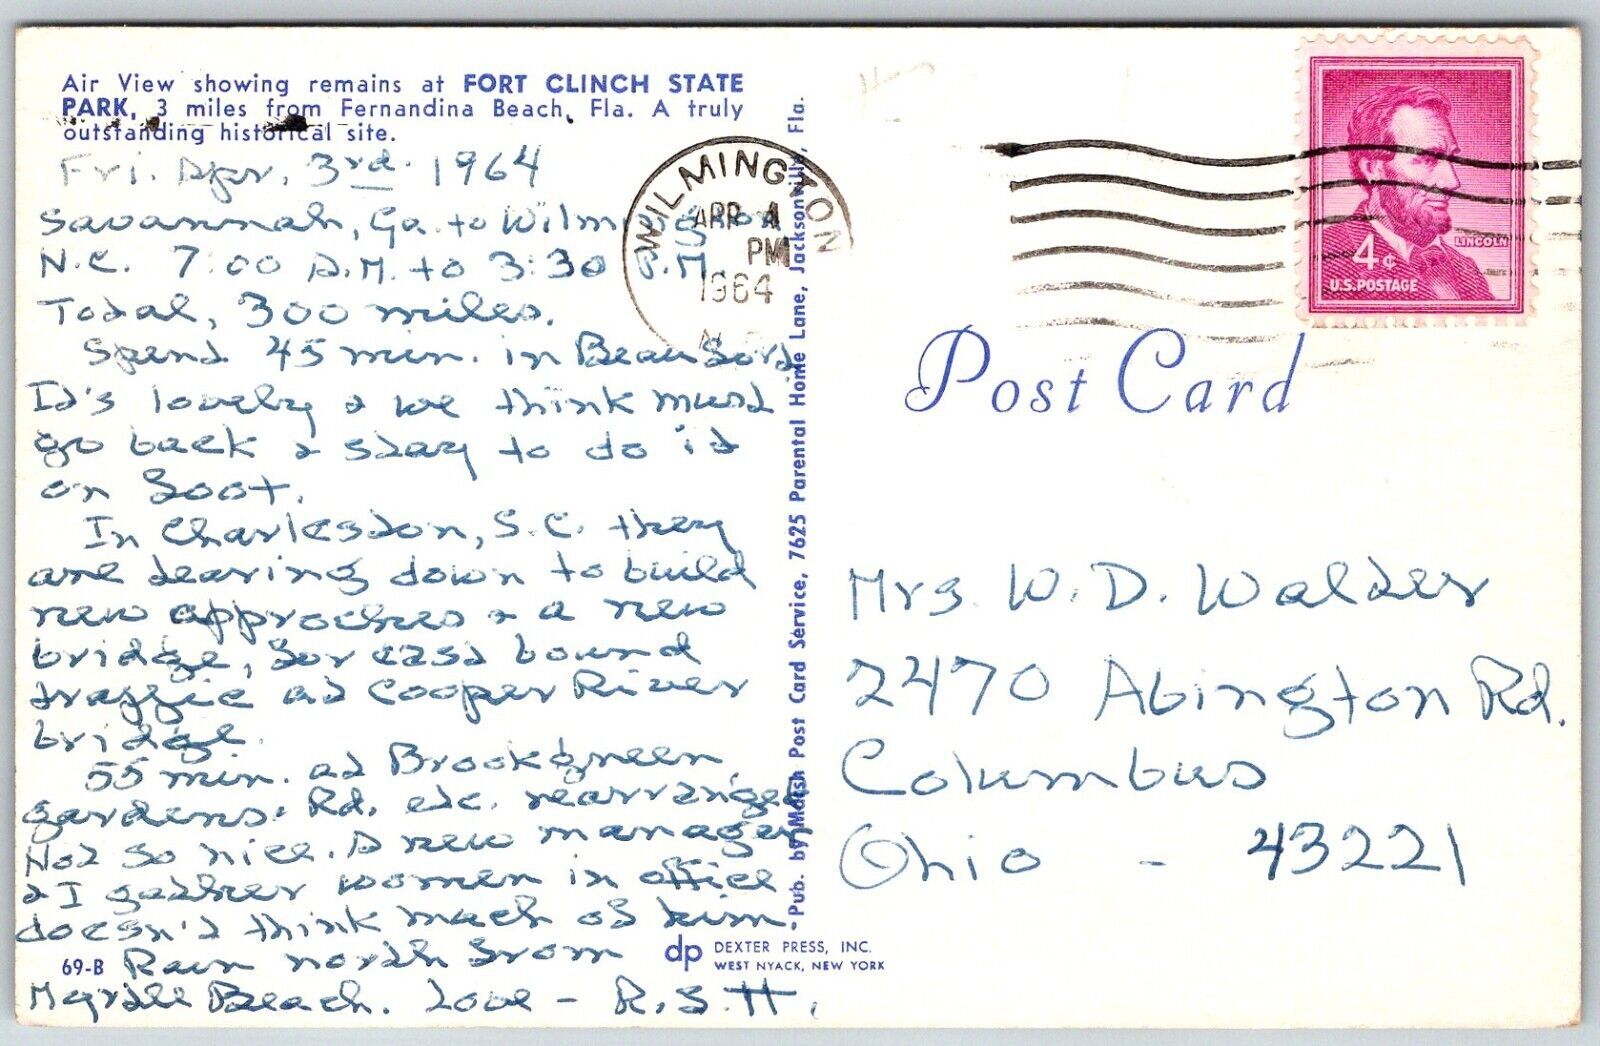 Air View showing remains at FORT CLINCH STATE
PARK, 3 miles from Fernandina Beach, Fla. A truly
outstanding historical site.
Fri. Apr, 3rd. 1964
Savannah, Ga. to Wilmington
N.C. 7:00 A.M. to 3:30 P.M.
Total, 300 miles.
Spend 45 min. in Beaufort,
It's lovely & we think must
go back & stay to do it
on foot.
In Charleston, S.C. they
are tearing down to build
new approches & a new
bridge, for east bound
traffic at Cooper River
bridge.
55 min. at Brookgreen
gardens. Rd. etc. rearranged
Not so nice. A new manager
& I gather women in office
doesn't think much of him.
Rain north from
Myrtle Beach. Love - R.S.H.
69-B
WILMINGTON
APR 4
PM
1964
N.C.
Pub. by Marsh Post Card Service, 7625 Parental Home Lane, Jacksonville, Fla.
dp DEXTER PRESS, INC.
WEST NYACK, NEW YORK
LINCOLN
4¢
U.S. POSTAGE
Post Card
Mrs. W. D. Walter
2470 Abington Rd.
Columbus
Ohio - 43221